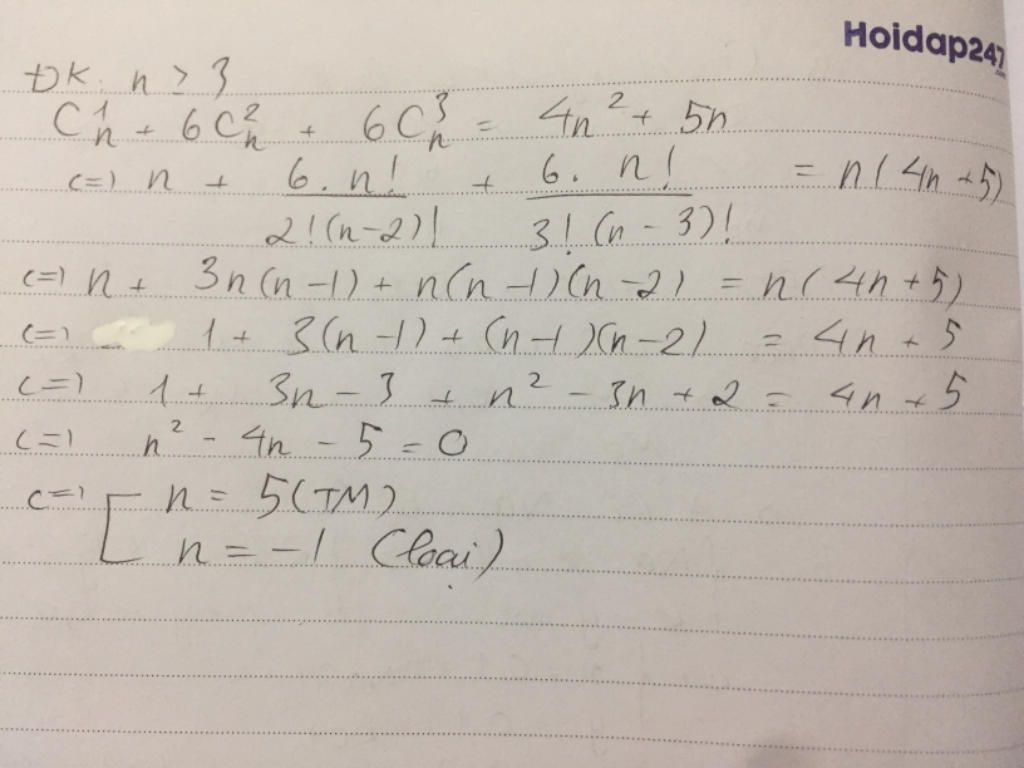 Hoidap247.com
ĐK: n ≥ 3
C¹ₙ + 6C²ₙ + 6C³ₙ = 4n² + 5n
(=) n + 6.n!/2!(n-2)! + 6.n!/3!(n-3)! = n(4n+5)
(=) n + 3n(n-1) + n(n-1)(n-2) = n(4n+5)
(=) 1 + 3(n-1) + (n-1)(n-2) = 4n + 5
(=) 1 + 3n - 3 + n² - 3n + 2 = 4n + 5
(=) n² - 4n - 5 = 0
(=) [ n = 5 (TM)
n = -1 (loại)